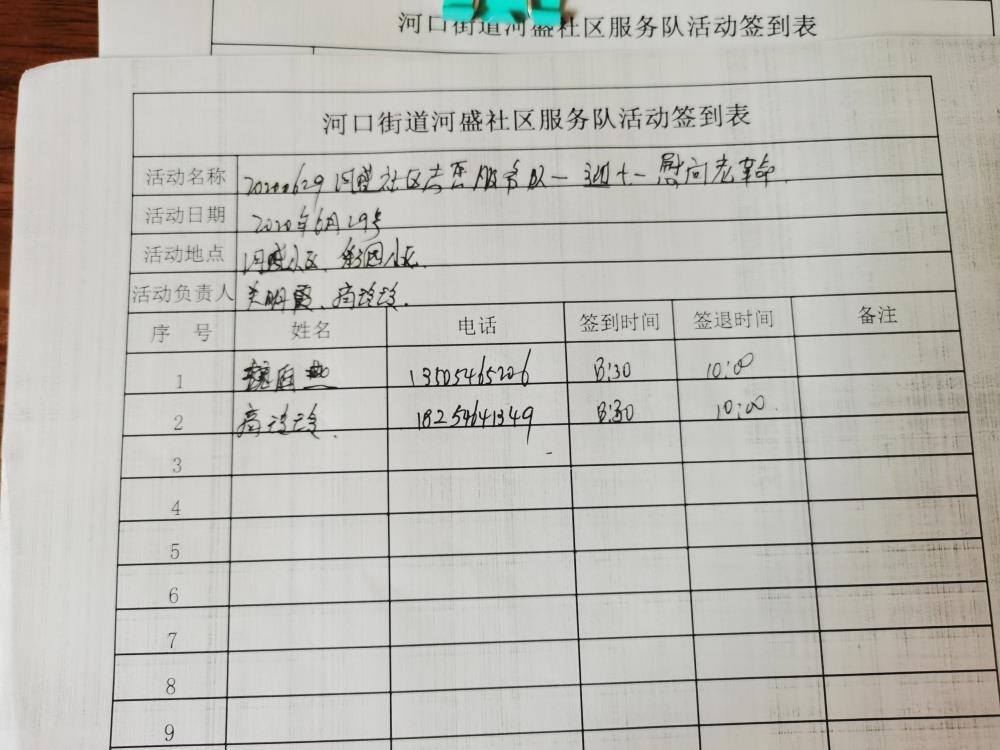 河口街道河盛社区服务队活动签到表
河口街道河盛社区服务队活动签到表
活动名称 20200629河盛社区志愿服务队一迎七一慰问老革命
活动日期 2020年6月29号
活动地点 河盛小区、
活动负责人 关明霞、高玲玲.
序 号 姓名 电话 签到时间 签退时间 备注
1 13505465206 8:30 10:00
2 高玲玲. 18254641349 8:30 10:00.
3
4
5
6
7
8
9